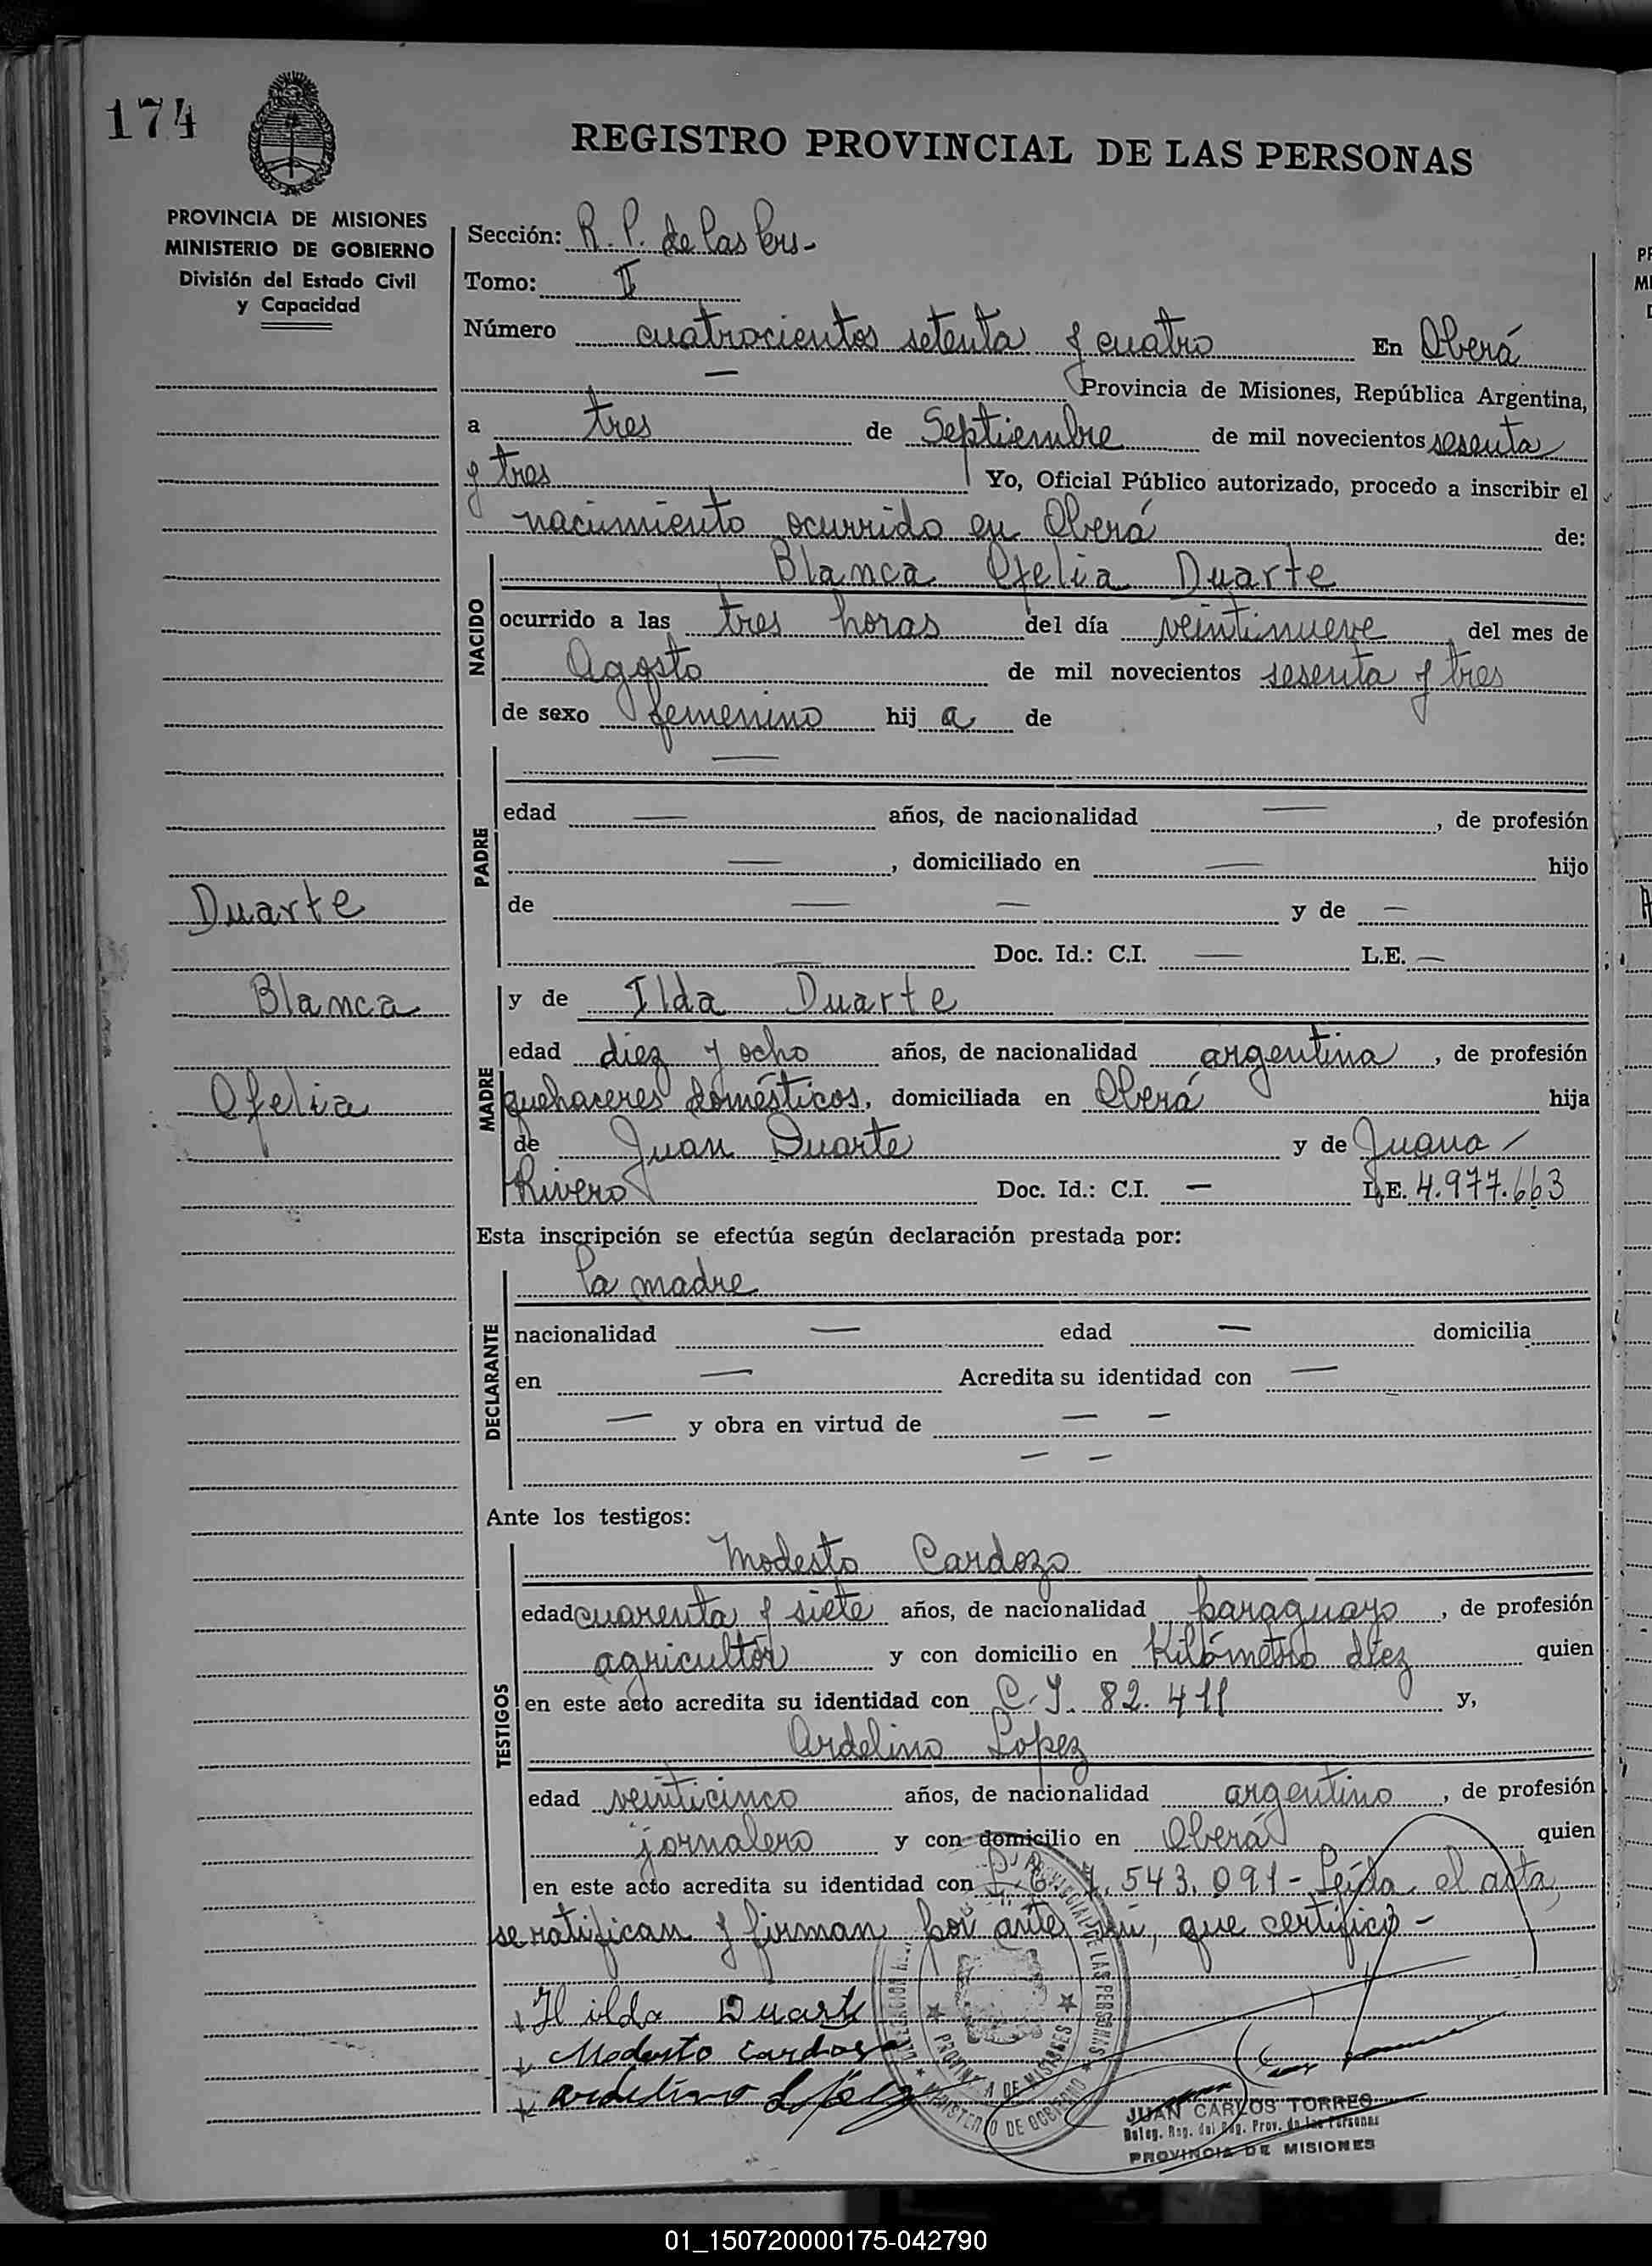 174
REGISTRO PROVINCIAL DE LAS PERSONAS
PROVINCIA DE MISIONES
MINISTERIO DE GOBIERNO
División del Estado Civil
y Capacidad
Sección: R. P. de las Pers-
Tomo: II
Número cuatrocientos setenta y cuatro En Oberá
— Provincia de Misiones, República Argentina,
a tres de Septiembre de mil novecientos sesenta
y tres Yo, Oficial Público autorizado, procedo a inscribir el
nacimiento ocurrido en Oberá de:
NACIDO
Blanca Ofelia Duarte
ocurrido a las tres horas del día veintinueve del mes de
Agosto de mil novecientos sesenta y tres
de sexo femenino hij a de
PADRE
—
edad — años, de nacionalidad — , de profesión
— , domiciliado en — hijo
de — — y de —
— Doc. Id.: C.I. — L.E. —
Duarte
Blanca
Ofelia
MADRE
y de Ilda Duarte
edad diez y ocho años, de nacionalidad argentina , de profesión
quehaceres domésticos, domiciliada en Oberá hija
de Juan Duarte y de Juana /
Rivero Doc. Id.: C.I. — L.E. 4.977.663
Esta inscripción se efectúa según declaración prestada por:
DECLARANTE
la madre
nacionalidad — edad — domicilia
en — Acredita su identidad con —
— y obra en virtud de — —
— —
Ante los testigos:
TESTIGOS
Modesto Cardozo
edad cuarenta y siete años, de nacionalidad paraguayo , de profesión
agricultor y con domicilio en Kilómetro diez quien
en este acto acredita su identidad con C. I. 82.411 y,
Ardelino Lopez
edad veinticinco años, de nacionalidad argentino , de profesión
jornalero y con domicilio en Oberá quien
en este acto acredita su identidad con 7.543.091- Leída el acta,
se ratifican y firman por ante mí, que certifico -
Hilda Duarte
Modesto Cardozo
Ardelino López
PROVINCIAL DE LAS PERSONAS
PROVINCIA DE MISIONES
MINISTERIO DE GOBIERNO
JUAN CARLOS TORRES
Deleg. Reg. del Reg. Prov. de las Personas
PROVINCIA DE MISIONES
01_150720000175-042790